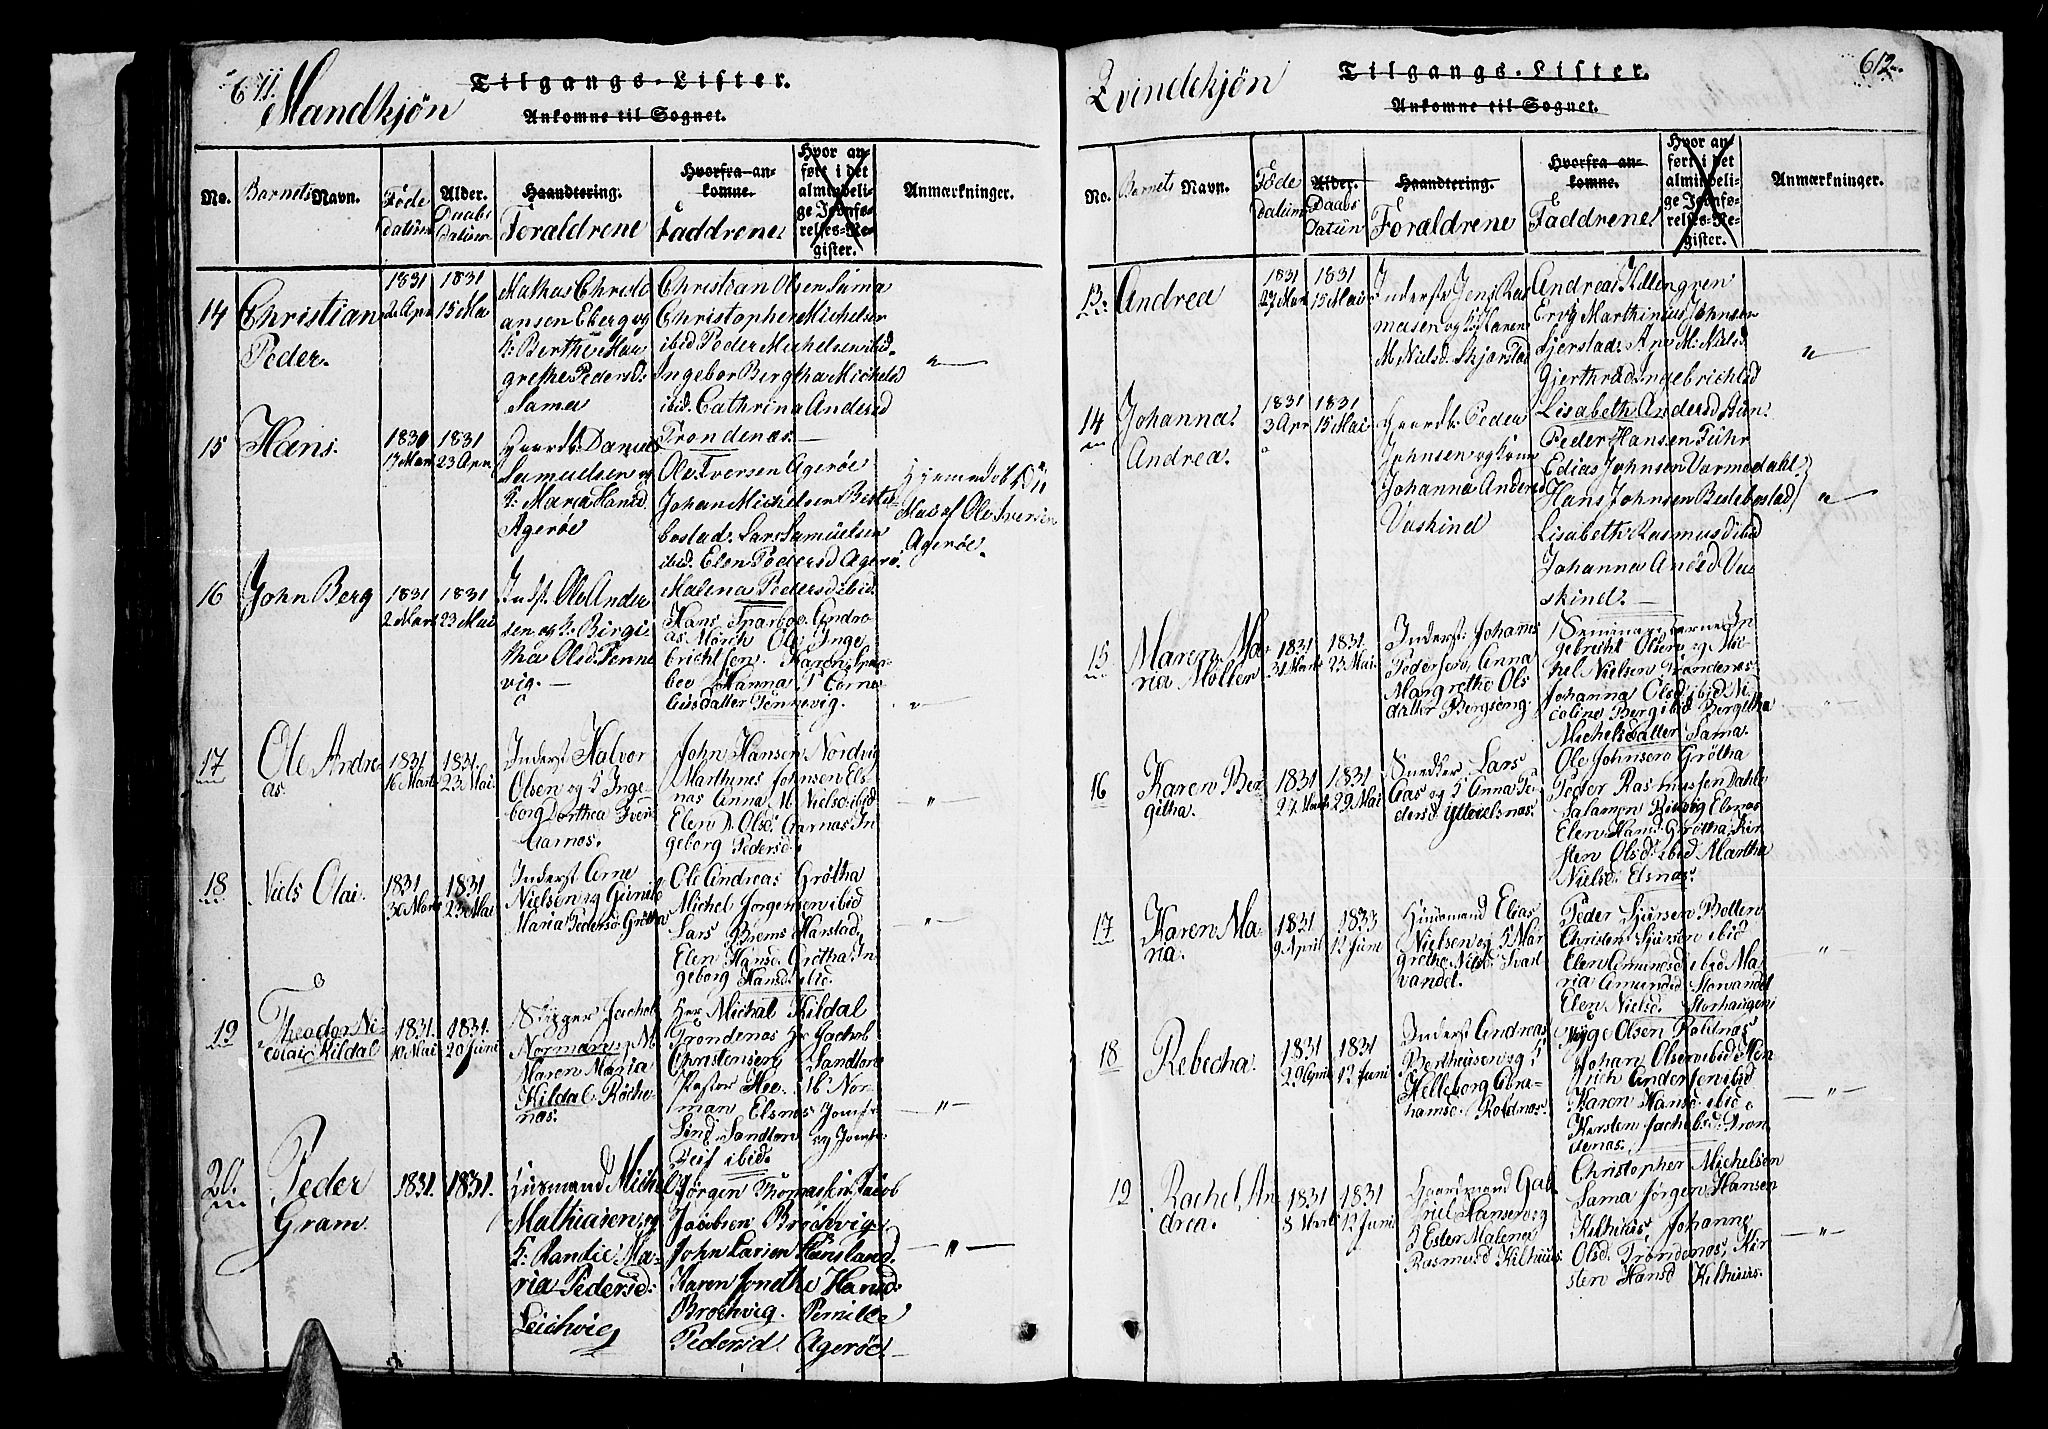 611.
Mandkjön
Tilgangs-Lister.
Ankomne til Sognet.
No.
Barnets Navn.
Föde datüm
Alder. Daabs Datüm
Haandtering. Foraldrene
Hvorfra ankomne. Faddrene
Hvor anføte i det almindelige Jevnførelses-Register.
Anmærkninger.
14
Christian
Peder.
1831
2 Apr
1831
15 Mai
Mathas Christi
ansen Eberg og
K: Berthe Mar
grethe Pedersd:
Sama
Christian Olsen Sama
Christopher Michelsen
ibid Peder Michelsen ibid.
Ingebor Bergtha Michelsd
ibid. Cathrina Andersd
Trondenas.
"
15
Hans.
17 Mars
1831
23 Apr.
Gaardb: Daniel
Samuelsen og
K: Maria Hansd
Agerøe
Ole Iversen Agerøe
Johan Michelsen Beste
bostad. Lars Samüelsen
ibid. Elen Pedersd Agerø.
Malena Pedersd ibid.
Hjemmedöbt d. 11
Mai af Ole Iversen
Agerøe.
16
John Berg
1831
2 Mars
1831
23 Mai
Indst. Ole Ander
sen og K: Birgi
tha Olsd. Tenne
vig.
Hans Sparboe Andre
as Mörch Ole Inge
brichtsen. Karen Spar
boe Hanna T Corne
liusdatter Tennevig.
"
17
Ole Andre
as
1831
16 Marts
1831.
23 Mai.
Inderst Halvor
Olsen og K Inge
borg Dorthea Iver
Aarnes.
John Hansen Nordvig
Marthines Johnsen Els
nas Anna M. Nielsd ibid
Elen D. Olsd. Aarnas In
geborg Pedersd.
"
18
Niels Olai.
1831
30 Mars
1831
23 Mai
Inderst Arne
Nielsen og Gunild
Maria Pedersd Grötha
Ole Andreas Grötha
Michel Jorgensen ibid
Lars Brems Harstad
Elen Hansd. Grötha In
geborg Hansd ibid.
"
19
Theodor Ni-
colai Kildal
1831.
10 Mai
1831.
20 Juni
Skipper Jachob
Normann og M.
Maren Maria
Kildal Röke
nas.
Her Michal Kildal
Trondenas Hr Jachob
Christensen Sandtorv
Pastor Hee. M. Nor
man Elsnas Jomfr
Lind Sandtorv og Jomfr
Feif ibid.
"
20.
Peder
Gram.
1831.
1831.
Husmand Mich
Mathiasen og
K: Randie Ma-
ria Pedersd:
Leichvig
Jørgen Thomasen Jacob
Jacobsen Brochvig
John Larsen Hansland.
Karen Jonethe Hansd:
Brochvig. Pernille
Pedersd. Agerøe.
"
612.
Qvindekjön
Tilgangs-Lister.
Ankomne til Sognet.
No.
Barnets Navn.
Föde Datüm
Alder. Daabs Datün
Haandtering. Foraldrene
Hvorfra ankomne. Faddrene
Hvor anført i det almindelige Jevnførelses-Register.
Anmærkninger.
13.
Andrea
1831
27 Mar
1831
15 Mai
Inderste Jens Ras
musen og K Maren
M. Nielsd. Skjarstad
Andreas Killengren
Ervig Marthinus Johnsen
Sjerstad. Ane M. Nielsd
Gjerthrud Ingebrichtsd
Lisabeth Andersd
"
14
Johanna
Andrea.
1831
3 Apr
1831
15 Mai
Gaardb: Peder
Johnsen og Kone
Johanna Andersd
Vaskind
Peder Hansen Führ
Edias Johnsen Varmedahl
Hans Johnsen Bestebostad
Lisabeth Rasmusd ibid
Johanna Andsd Vas
skind.
"
15
Maren Ma-
ria Molten
1831
31 Marts
1831.
23 Mai.
Inderst: Johannes
Pedersen, Anna
Margrethe Ols
datter Bergseng
Seminaresterne In
gebricht Olsen og Mi-
chel Nielsen Trondenas
Johanna Olsd ibid Ni
coline Berg ibid Bergitha
Michelsdatter Sama.
"
16
Karen Ber-
githa.
1831
27 Marts
1831
29 Mai
Snedker Lars
Aas og K Anna Pe
dersd Ytterelsnas.
Ole Johnsen Grötha
Peder Rasmussen Dahle
Salamon Elsnas
Elen Hansd. Grötha, Kir
sten Olsd. ibid Martha
Nielsd. Elsnas.
17
Karen Ma-
ria.
1831
9 April
1833
12 Juni
Huusmand Elias
Nielsen og K Mar
grethe Nielsd. Svart
vandet.
Peder Sjursen Bolten
Christen Sjursen ibid
Elen Amundsd ibid Ma-
ria Amundsd Storvandet
Elen Nielsd. Storhaugen
"
18
Rebecha.
1831
29 April
1831
12 Juni
Inderst Andreas
Bertheusen og K
Helleborg Abra-
hamsd. Roldnas.
Aage Olsen Roldnas
Johan Olsen ibid Hen
rich Andersen ibid
Karen Hansd. ibid
Kirsten Jachobsd. Tron
denas.
"
19
Rachel An
drea.
1831
8 Marts
1831
12 Juni
Gaardmand Gab
riel Hansen og
K Ester Malena
Rasmusd Kilhuus.
Christopher Michelsen
Sama Jørgen Hansen
Kilhuus, Johanne
Olsd. Trondenas, Kir
sten Hansd Kilhuus.
"